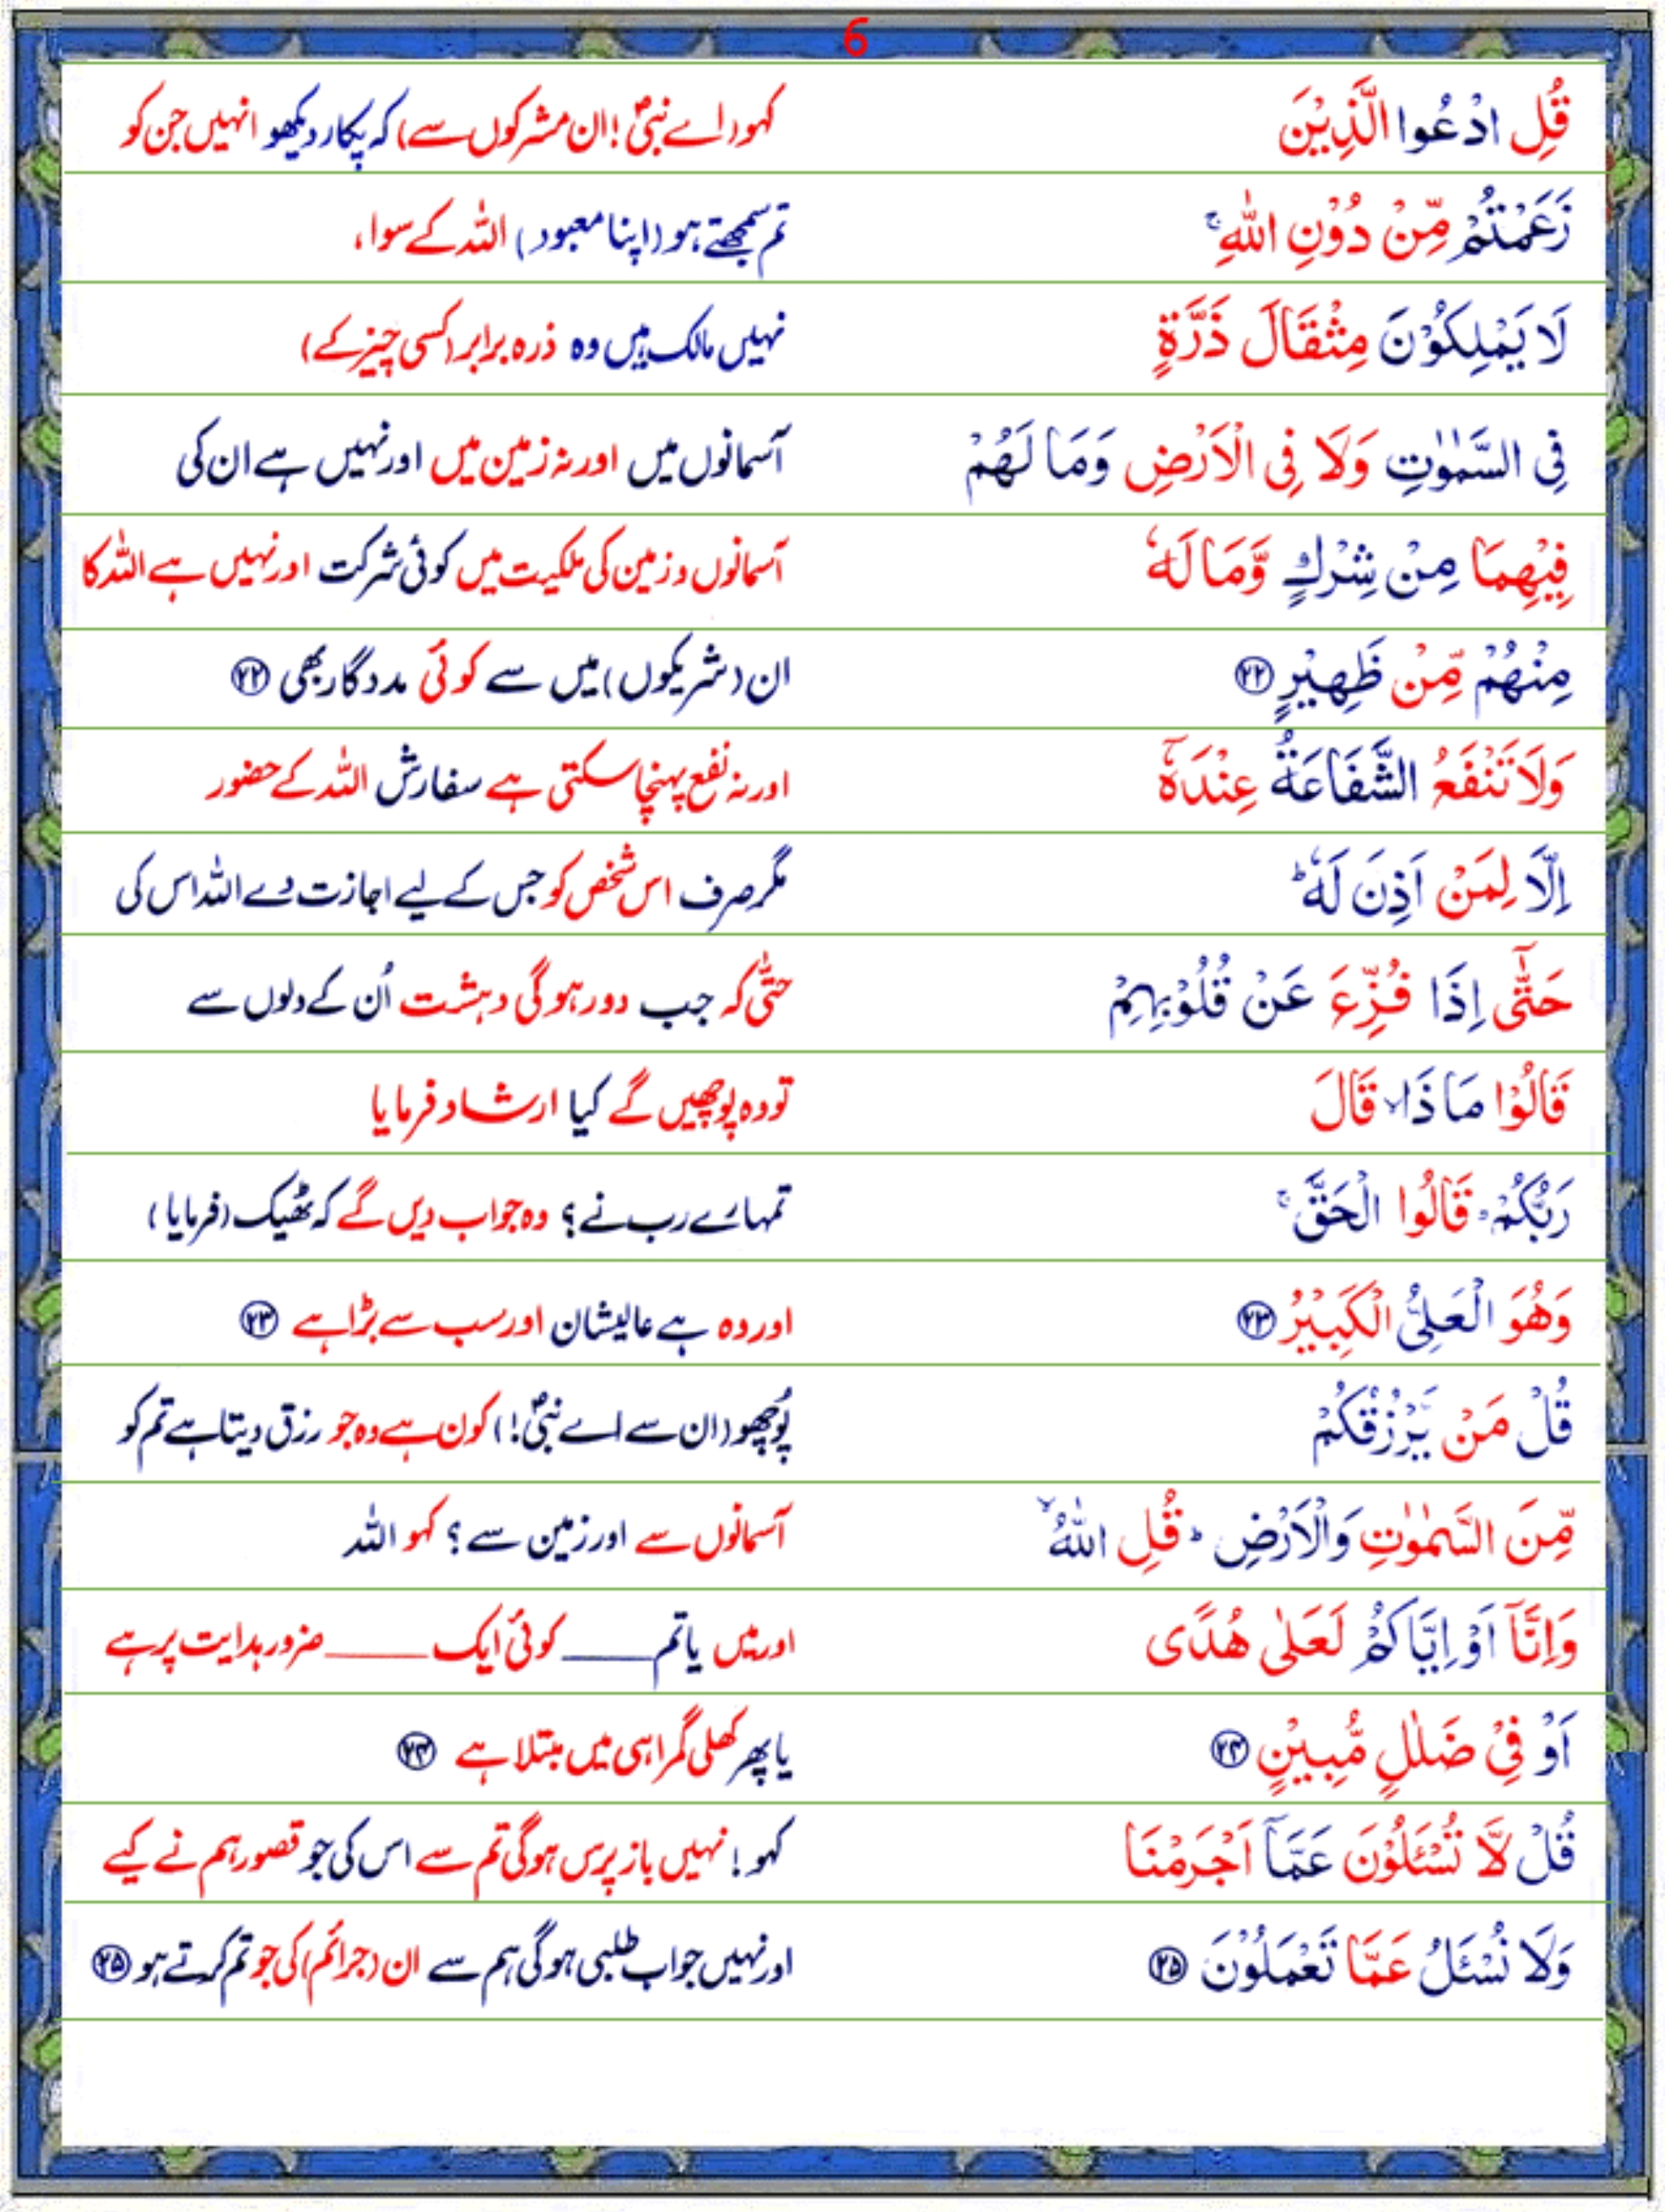 6
قُلِ ادْعُوا الَّذِيْنَ کہو (اے نبیؐ! ان مشرکوں سے) کہ پکار دیکھو انہیں جن کو
زَعَمْتُمْ مِّنْ دُوْنِ اللّٰهِ ۚ تم سمجھتے ہو (اپنا معبود) اللہ کے سوا،
لَا يَمْلِكُوْنَ مِثْقَالَ ذَرَّةٍ نہیں مالک ہیں وہ ذرہ برابر (کسی چیز کے)
فِى السَّمٰوٰتِ وَلَا فِى الْاَرْضِ وَمَا لَهُمْ آسمانوں میں اور نہ زمین میں اور نہیں ہے ان کی
فِيْهِمَا مِنْ شِرْكٍ وَّمَا لَهٗ آسمانوں و زمین کی ملکیت میں کوئی شرکت اور نہیں ہے اللہ کا
مِنْهُمْ مِّنْ ظَهِيْرٍ ﴿۲۲﴾ ان (شریکوں) میں سے کوئی مددگار بھی ﴿۲۲﴾
وَلَا تَنْفَعُ الشَّفَاعَةُ عِنْدَهٗۤ اور نہ نفع پہنچا سکتی ہے سفارش اللہ کے حضور
اِلَّا لِمَنْ اَذِنَ لَهٗ ؕ مگر صرف اس شخص کو جس کے لیے اجازت دے اللہ اس کی
حَتّٰٓى اِذَا فُزِّعَ عَنْ قُلُوْبِهِمْ حتّٰی کہ جب دور ہوگی دہشت اُن کے دلوں سے
قَالُوْا مَاذَا ۙ قَالَ تو وہ پوچھیں گے کیا ارشاد فرمایا
رَبُّكُمْ ؕ قَالُوا الْحَقَّ ۚ تمہارے رب نے؟ وہ جواب دیں گے کہ ٹھیک (فرمایا)
وَهُوَ الْعَلِىُّ الْكَبِيْرُ ﴿۲۳﴾ اور وہ ہے عالیشان اور سب سے بڑا ہے ﴿۲۳﴾
قُلْ مَنْ يَّرْزُقُكُمْ پُوچھو (ان سے اے نبیؐ!) کون ہے وہ جو رزق دیتا ہے تم کو
مِّنَ السَّمٰوٰتِ وَالْاَرْضِ ؕ قُلِ اللّٰهُ ۙ آسمانوں سے اور زمین سے؟ کہو اللہ
وَاِنَّاۤ اَوْ اِيَّاكُمْ لَعَلٰى هُدًى اور ہیں یا تم ____ کوئی ایک ____ ضرور ہدایت پر ہے
اَوْ فِىْ ضَلٰلٍ مُّبِيْنٍ ﴿۲۴﴾ یا پھر کھلی گمراہی میں مبتلا ہے ﴿۲۴﴾
قُلْ لَّا تُسْئَلُوْنَ عَمَّاۤ اَجْرَمْنَا کہو! نہیں باز پرس ہوگی تم سے اس کی جو قصور ہم نے کیے
وَلَا نُسْئَلُ عَمَّا تَعْمَلُوْنَ ﴿۲۵﴾ اور نہیں جواب طلبی ہوگی ہم سے ان (جرائم) کی جو تم کرتے ہو ﴿۲۵﴾